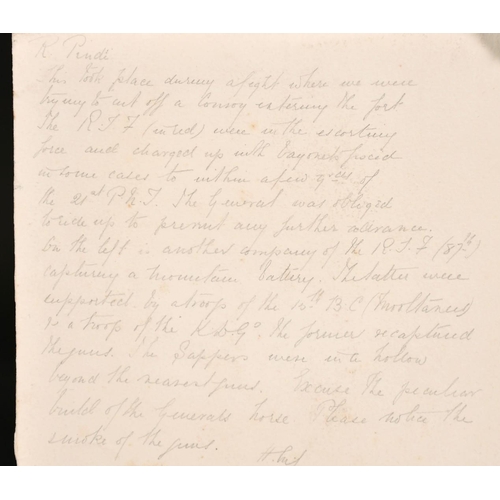 R. Pindi
This took place during a fight where we were
trying to cut off a convoy entering the fort
The R.I.F (in red) were in the escorting
force and charged up with bayonets fixed
in some cases to within a few yds of
the 21st P.N.I. The General was obliged
to ride up to prevent any further advance.
On the left is another company of the R.I.F (87th)
capturing a mountain battery. The latter were
supported by a troop of the 15th B.C (Mooltanees)
& a troop of the K.D.Gs. The former recaptured
the guns. The Sappers were in te hollow
beyond the nearest guns. Excuse the peculiar
build of the Generals horse Please notice the
smoke of the guns.